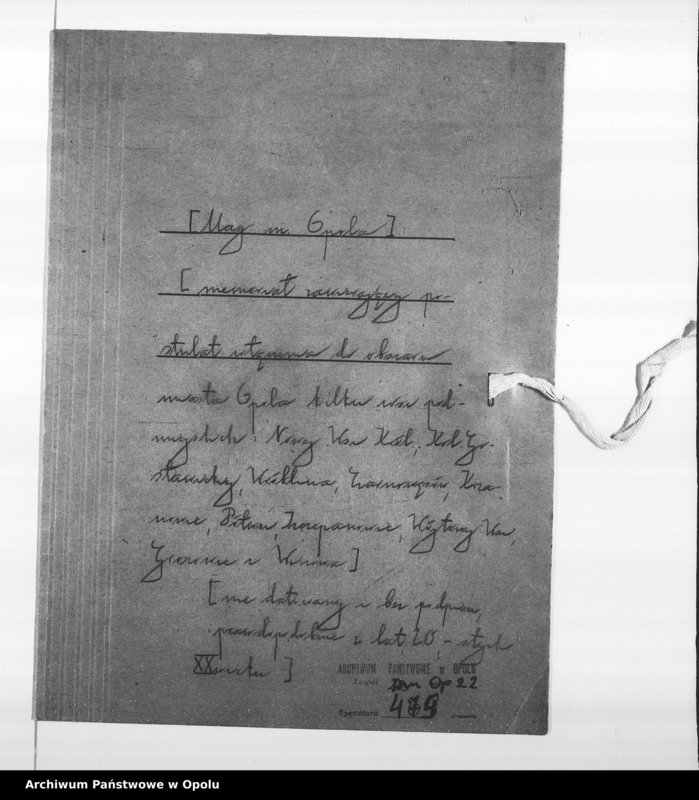 [Mag m. Opola]
[memoriał zawierający po-
stulat włączenia do obszaru
miasta Opola kilku wsi pod-
miejskich: Nowej Wsi Król., Kol. Go-
sławickiej, Wróblina, Czarnowąsów,
Półwsi, Szczepanowic, Wójtowej Wsi,
Groszowic i Winowa]
[nie datowany i bez podpisu,
prawdopodobnie z lat 20-stych
XX wieku]
ARCHIWUM PAŃSTWOWE w OPOLU
Zespół Am Op 22
Sygnatura 475
Archiwum Państwowe w Opolu